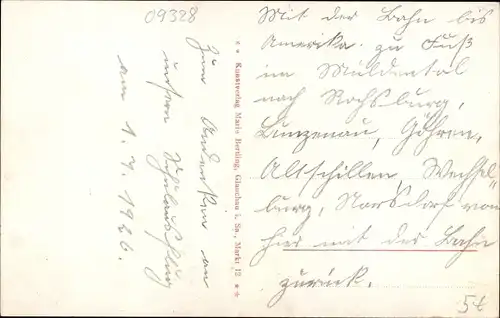 09328
Zum Andenken an
unsern Schulausflug
am 1. 7. 1926.
* * Kunstverlag Marie Bertling, Glauchau i. Sa., Markt 12 * *
Mit der Bahn bis
Amerika. zu Fuß
im Muldental
nach Rochsburg,
Lunzenau, Göhren,
Altschillen, Wechsel-
burg, Narsdorf von
hier mit der Bahn
zurück.
5€